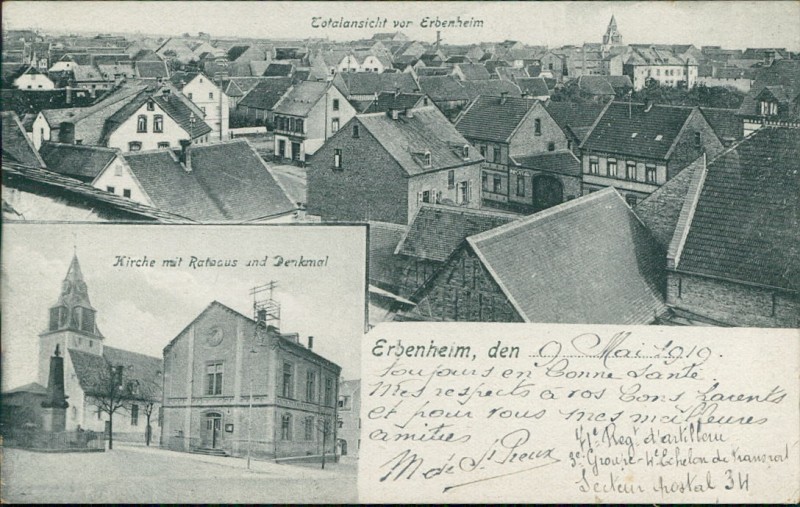 Totalansicht von Erbenheim
Kirche mit Rathaus und Denkmal
Erbenheim, den 9 Mai 1919.
toujours en bonne santé
Mes respects à vos bons parents
et pour vous mes meilleures
amitiés
M de St Preux
Regt d'artillerie
3e Groupe - 4e Echelon de transport
Secteur postal 34